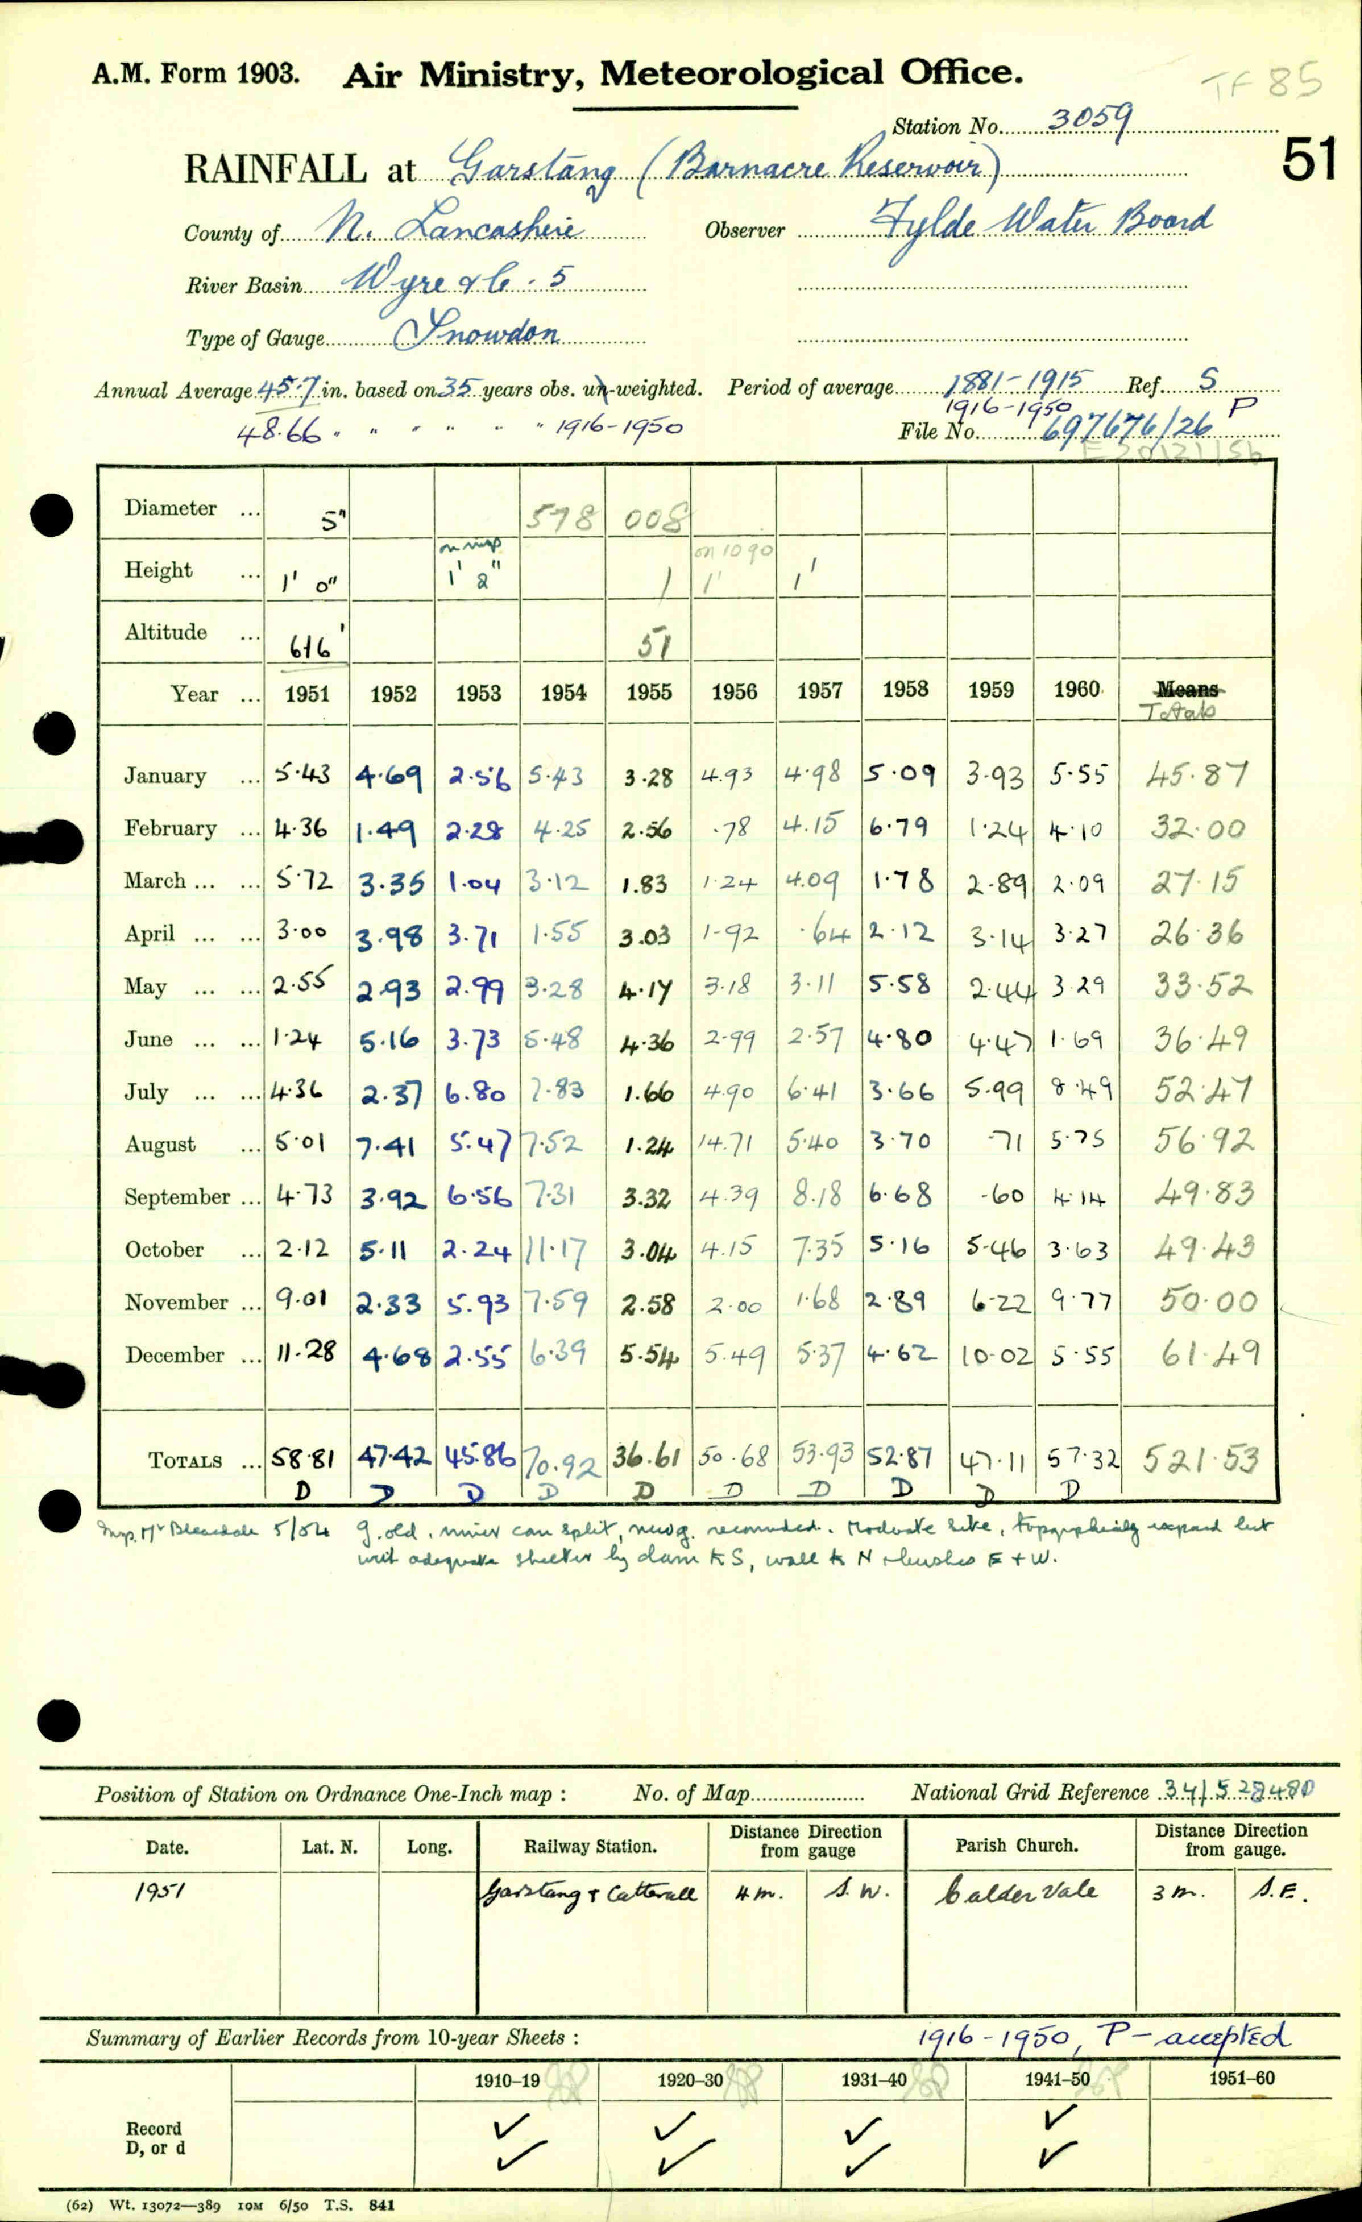 A.M. Form 1903. Air Ministry, Meteorological Office.
TF 85
Station No. 3059
51
RAINFALL at Garstang (Barnacre Reservoir)
County of N. Lancashire Observer Fylde Water Board
River Basin Wyre &C. 5
Type of Gauge Snowdon
Annual Average 45.7 in. based on 35 years obs. un-weighted. Period of average 1881-1915 Ref. S
1916-1950 P
48.66 " " " " " " 1916-1950 File No. 697676/26
Diameter ... 5" 578 008
on insp on 1090
Height ... 1' 0" 1' 2" 1 1' 1'
Altitude ... 616' 51
Year ... 1951 1952 1953 1954 1955 1956 1957 1958 1959 1960 Means
Totals
January ... 5.43 4.69 2.56 5.43 3.28 4.93 4.98 5.09 3.93 5.55 45.87
February ... 4.36 1.49 2.28 4.25 2.56 .78 4.15 6.79 1.24 4.10 32.00
March ... ... 5.72 3.35 1.04 3.12 1.83 1.24 4.09 1.78 2.89 2.09 27.15
April ... ... 3.00 3.98 3.71 1.55 3.03 1.92 .64 2.12 3.14 3.27 26.36
May ... ... 2.55 2.93 2.99 3.28 4.17 3.18 3.11 5.58 2.44 3.29 33.52
June ... ... 1.24 5.16 3.73 5.48 4.36 2.99 2.57 4.80 4.47 1.69 36.49
July ... ... 4.36 2.37 6.80 7.83 1.66 4.90 6.41 3.66 5.99 8.49 52.47
August ... 5.01 7.41 5.47 7.52 1.24 14.71 5.40 3.70 .71 5.75 56.92
September ... 4.73 3.92 6.56 7.31 3.32 4.39 8.18 6.68 .60 4.14 49.83
October ... 2.12 5.11 2.24 11.17 3.04 4.15 7.35 5.16 5.46 3.63 49.43
November ... 9.01 2.33 5.93 7.59 2.58 2.00 1.68 2.89 6.22 9.77 50.00
December ... 11.28 4.68 2.55 6.39 5.54 5.49 5.37 4.62 10.02 5.55 61.49
TOTALS ... 58.81 47.42 45.86 70.92 36.61 50.68 53.93 52.87 47.11 57.32 521.53
D D D D D D D D D D
Insp. Mr Bleasdale 5/54 g. old, inner can split, new g. recommended. Moderate site, topographically exposed but
with adequate shelter by dam to S, wall to N + bushes E + W.
Position of Station on Ordnance One-Inch map : No. of Map National Grid Reference 34/528480
Date. Lat. N. Long. Railway Station. Distance Direction from gauge Parish Church. Distance Direction from gauge.
1951 Garstang & Catterall 4 m. S.W. Calder Vale 3 m. S.E.
Summary of Earlier Records from 10-year Sheets : 1916-1950, P-accepted
1910-19 1920-30 1931-40 1941-50 1951-60
Record
D, or d
✓ ✓ ✓ ✓
✓ ✓ ✓ ✓
(62) Wt. 13072—389 10M 6/50 T.S. 841